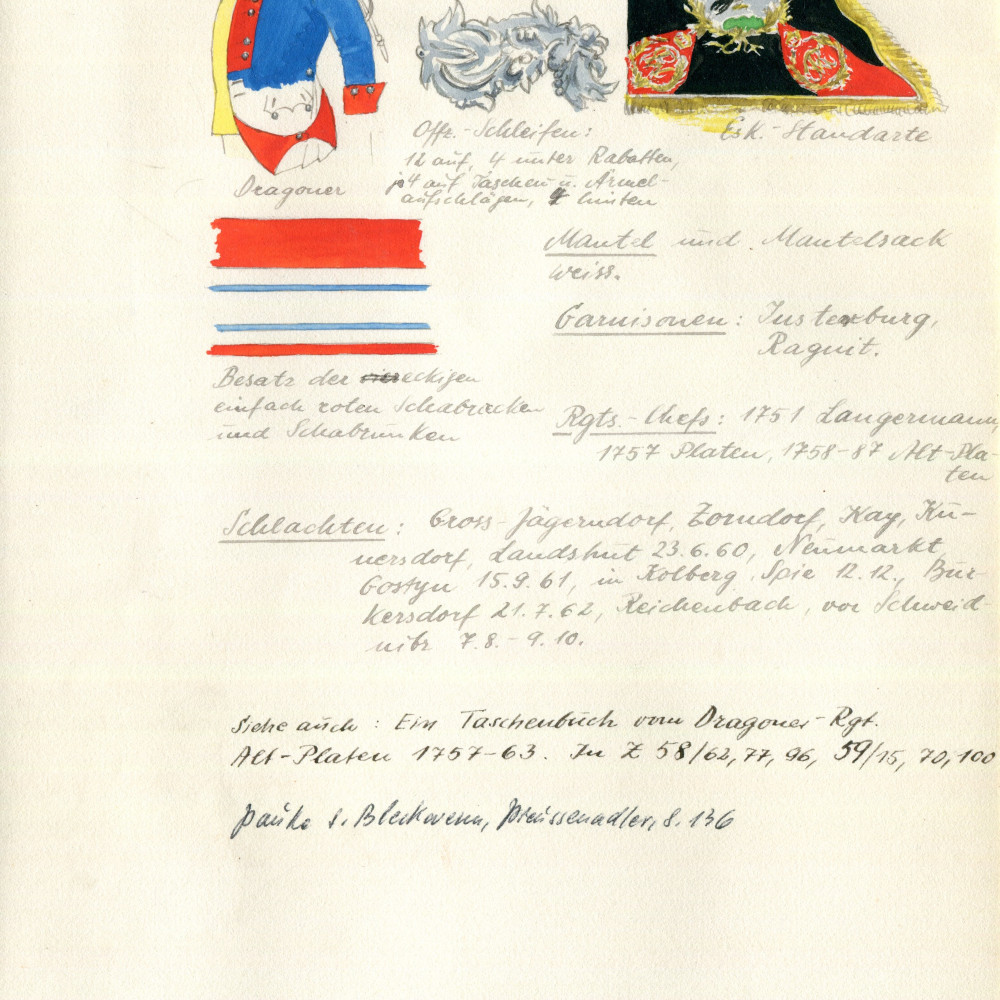 Dragoner
Offz.-Schleifen:
12 auf, 4 unter Rabatten,
je 4 auf Taschen u. Ärmel-
aufschlägen, 4 hinten
Esk.-Standarte
Mantel und Mantelsack
weiss.
Garnisonen: Insterburg,
Ragnit.
Besatz der eckigen
einfach roten Schabracken
und Schabrunken
Rgts.-Chefs: 1751 Langermann,
1757 Platen, 1758-87 Alt-Pla-
ten
Schlachten: Gross-Jägerndorf, Zorndorf, Kay, Ku-
nersdorf, Landshut 23.6.60, Neumarkt,
Gostyn 15.9.61, in Kolberg, Spie 12.12., Bur-
kersdorf 21.7.62, Reichenbach, vor Schweid-
nitz 7.8.-9.10.
Siehe auch: Ein Taschenbuch vom Dragoner-Rgt.
Alt-Platen 1757-63. In Z 58/62, 77, 96, 59/15, 70, 100
Pauke s. Bleckwenn, Preussenadler, S. 136